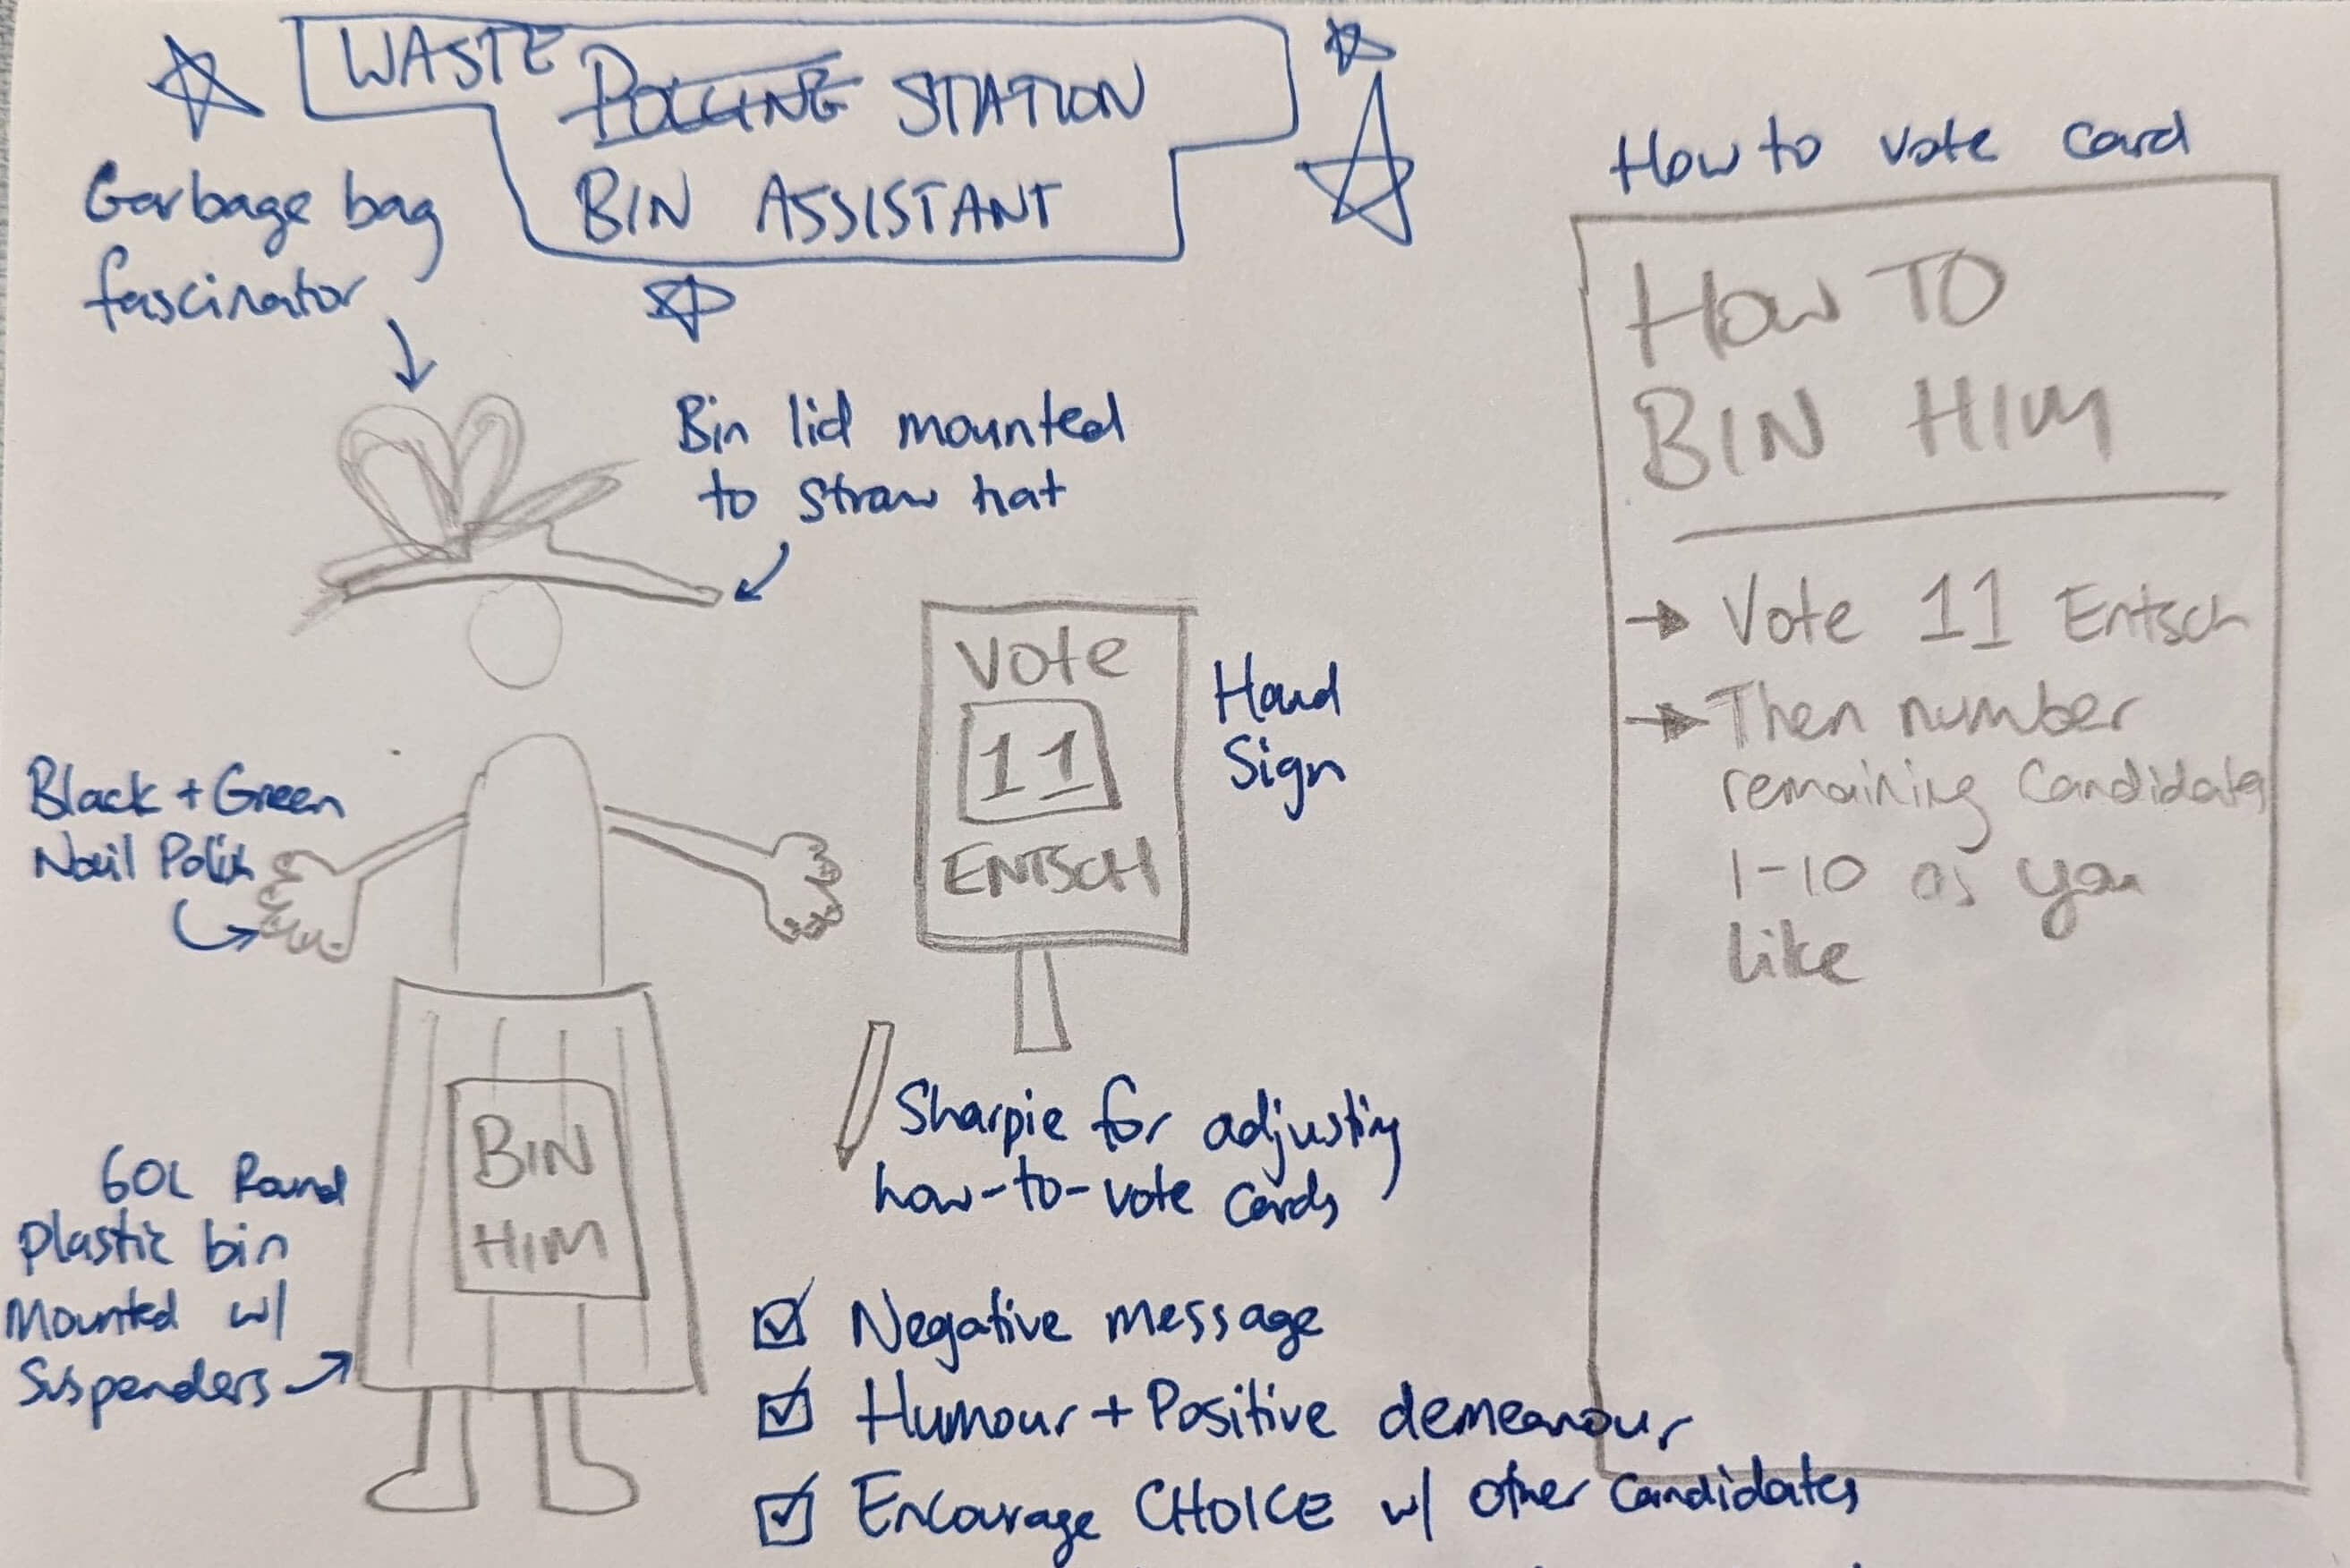 WASTE
POLLING STATION
BIN ASSISTANT
Garbage bag
fascinator
Bin lid mounted
to straw hat
Black + Green
Nail Polish
60L Round
plastic bin
Mounted w/
Suspenders
BIN
HIM
Vote
11
ENTSCH
Hand
Sign
Sharpie for adjusting
how-to-vote cards
Negative message
Humour + Positive demeanour
Encourage CHOICE w/ other candidates
How to vote card
HOW TO
BIN HIM
→ Vote 11 Entsch
→ Then number
remaining Candidates
1-10 as you
like